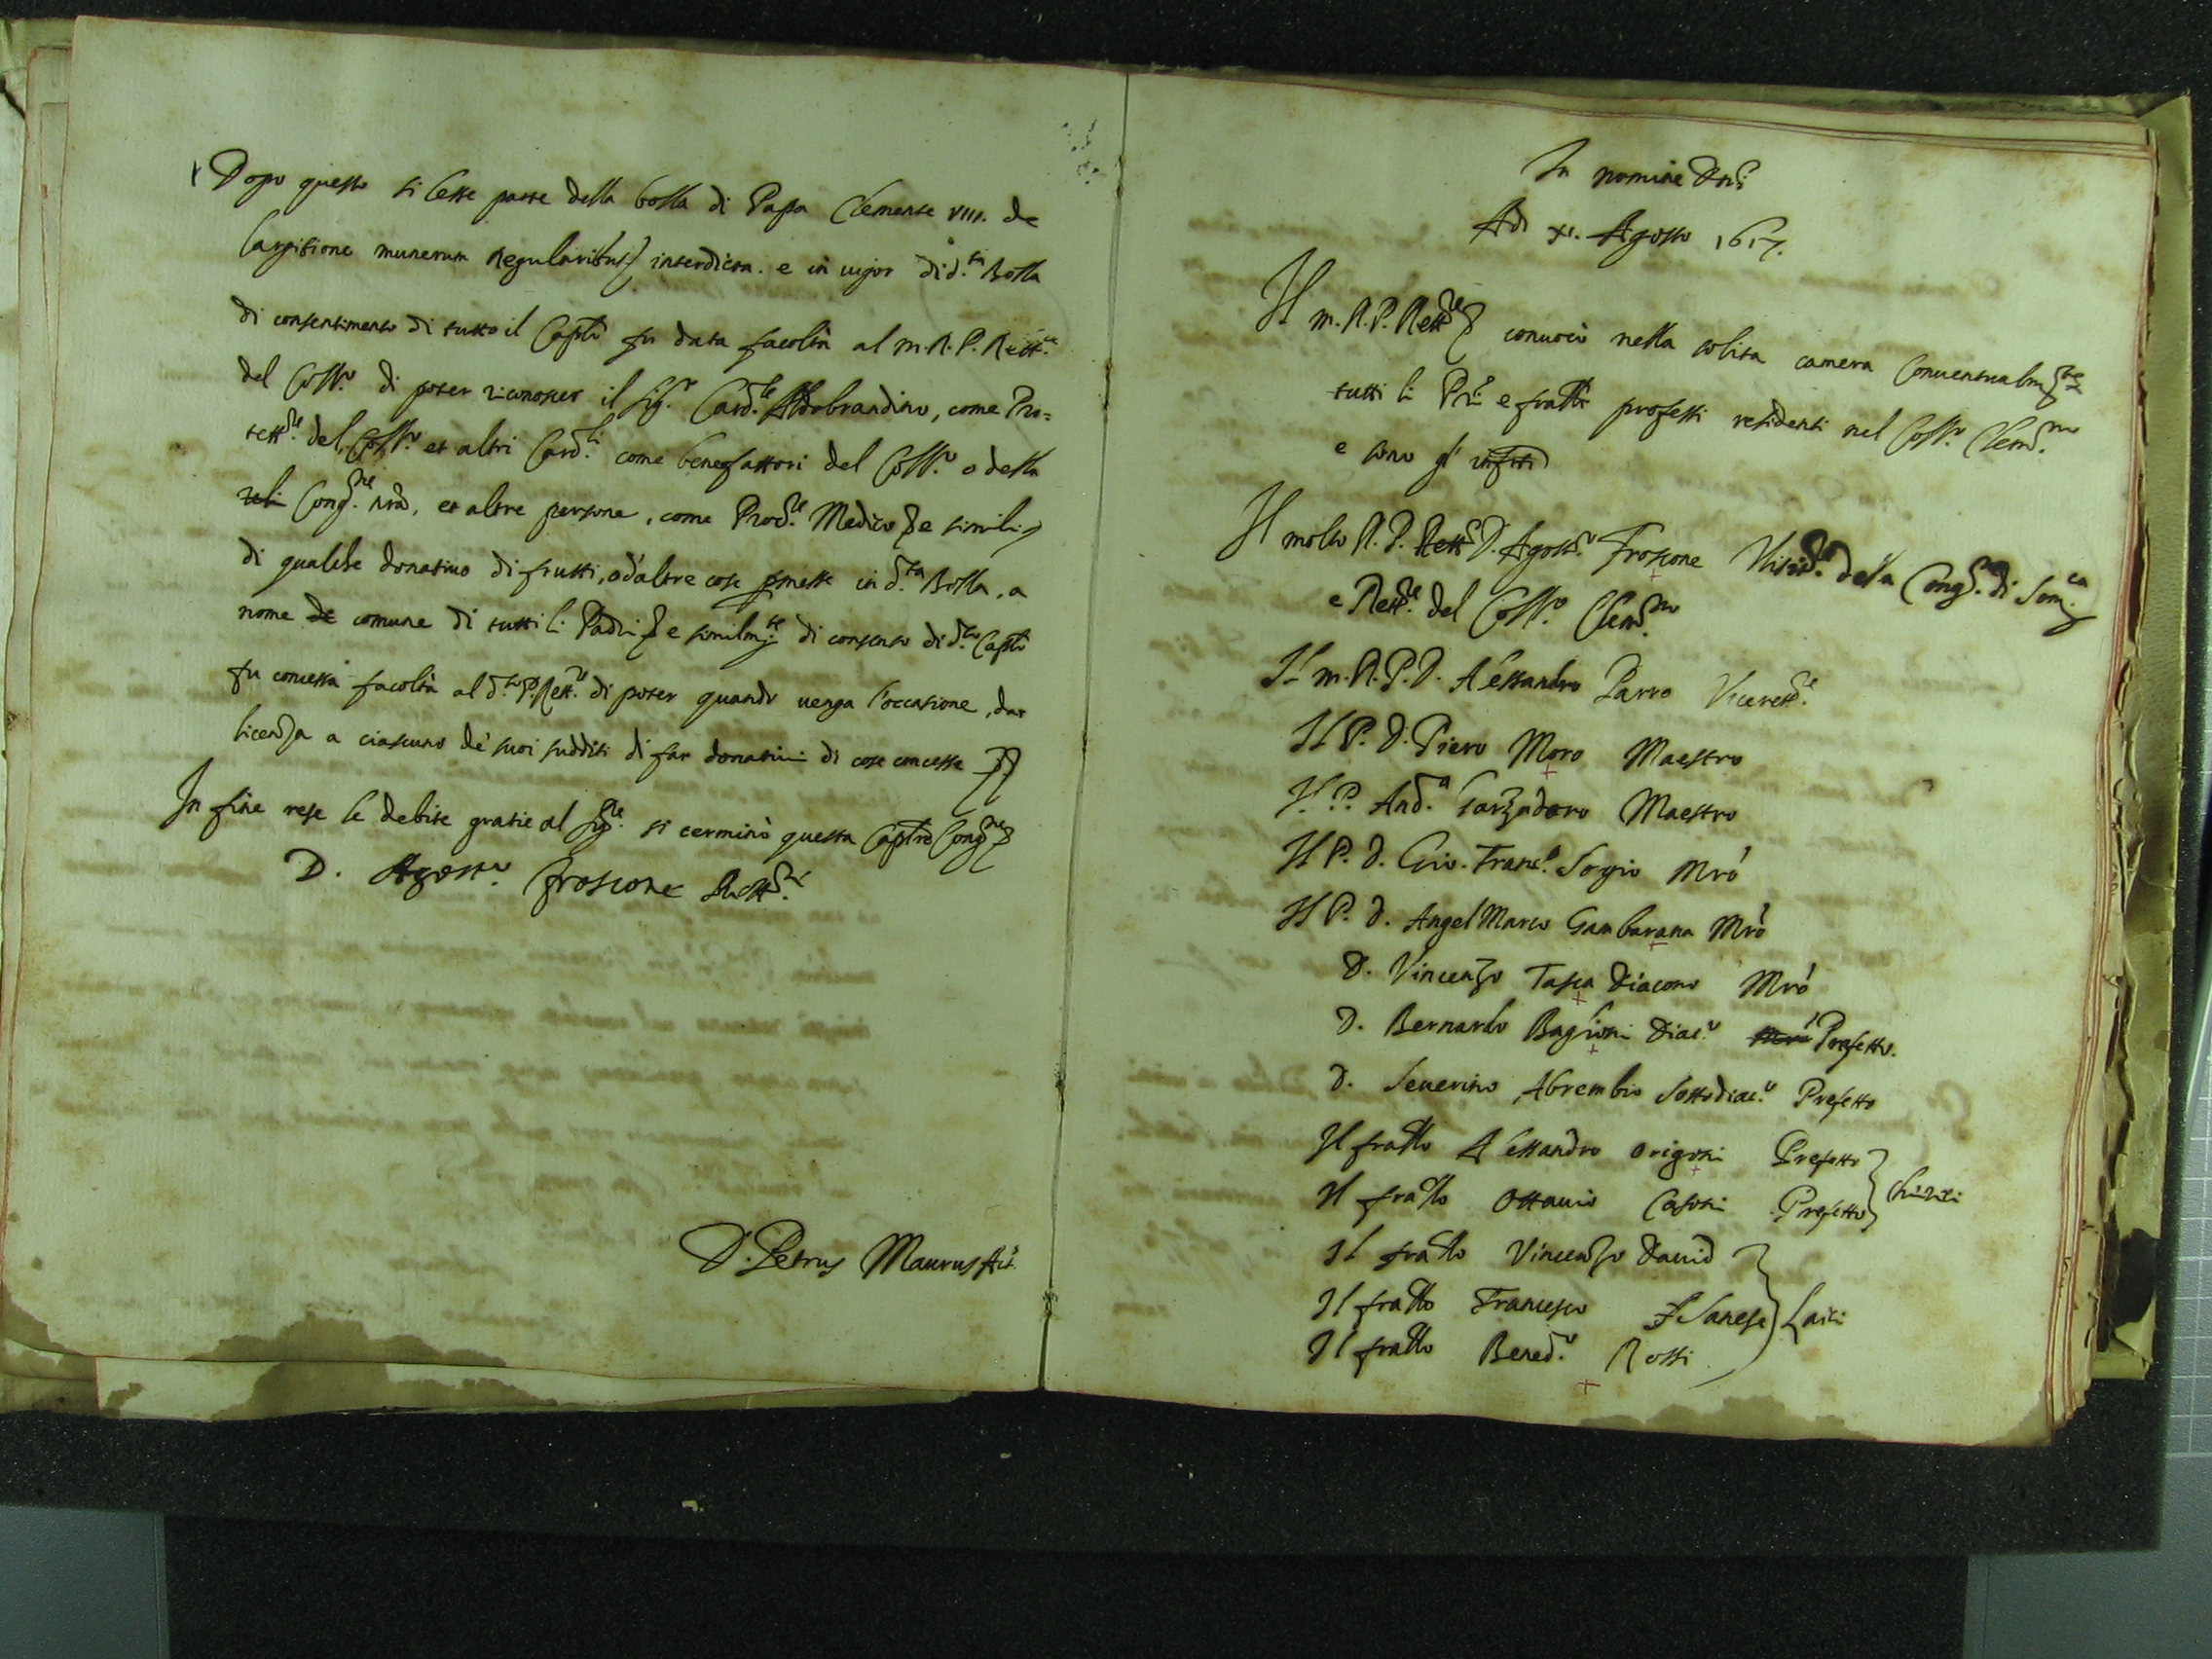 Dopo questo si lesse parte della bolla di Papa Clemente VIII. de
largitione munerum Regularibus interdicta. e in uigor di d.ta Bolla
di consentimento di tutto il Caplo fu data facoltà al m.R.P. Rett.re
del Coll.o di poter riconoscer il Sig.r Card.le Aldobrandino, come Pro=
tett.re del Coll.o et altri Card.li come benefattori del Coll.o o della
Cong.ne nrã, et altre persone, come Proc.re Medico e simili
di qualche donatiuo di frutti, o d'altre cose pmesse in d.ta Bolla, a
nome de comune di tutti li Padri e similm.te di consenso di d.to Caplo
fu concessa facoltà al d.to P. Rett.re di poter quando uenga l'occasione, dar
licenza a ciascuno de' suoi sudditi di far donatiui di cose concesse
In fine rese le debite gratie al Sig.re si terminò questa Caplre Cong.ne
D. Agost.o Froscone Rett.re
D. Petrus Maurus Act.
In nomine Dni
Adi XI. Agosto 1617.
Il m.R.P. Rett.re conuocò nella solita camera Conuentualm.te
tutti li Pri e fratlli professi residenti nel Coll.o Clem.no
e sono gl' infrti
Il molto R.P. Rett.r D. Agost.o Froscone Visit.re della Cong.ne di Som.ca
e Rett.re del Coll.o Clem.no
Il m.R.P.D. Alessandro Parro Vicerett.re
Il P. D. Piero Moro Maestro
Il P. And.a Garzadoro Maestro
Il P. D. Gio. Franc.o Sorgio Mrõ
Il P. D. Angel Marco Gambarana Mrõ
D. Vincenzo Tasca Diacono Mrõ
D. Bernardo Baglioni Diac.o Prefetto.
D. Seuerino Abrembio Sottodiac.o Prefetto
Il fratllo Alessandro Origoni Prefetto
Il fratllo Ottauio Casoni Prefetto } Chierici
Il fratllo Vincenzo Dauid
Il fratllo Francesco Sanese } Laici
Il fratllo Bened.o Rossi